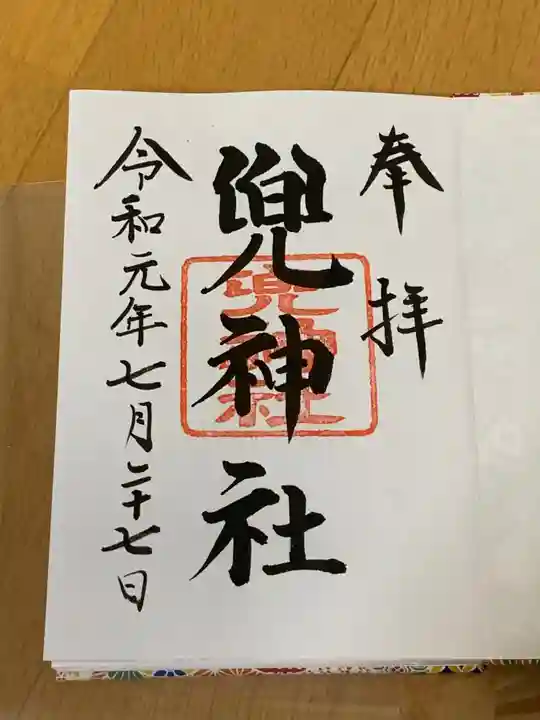 奉拝
兜神社
兜神社
令和元年七月二十七日